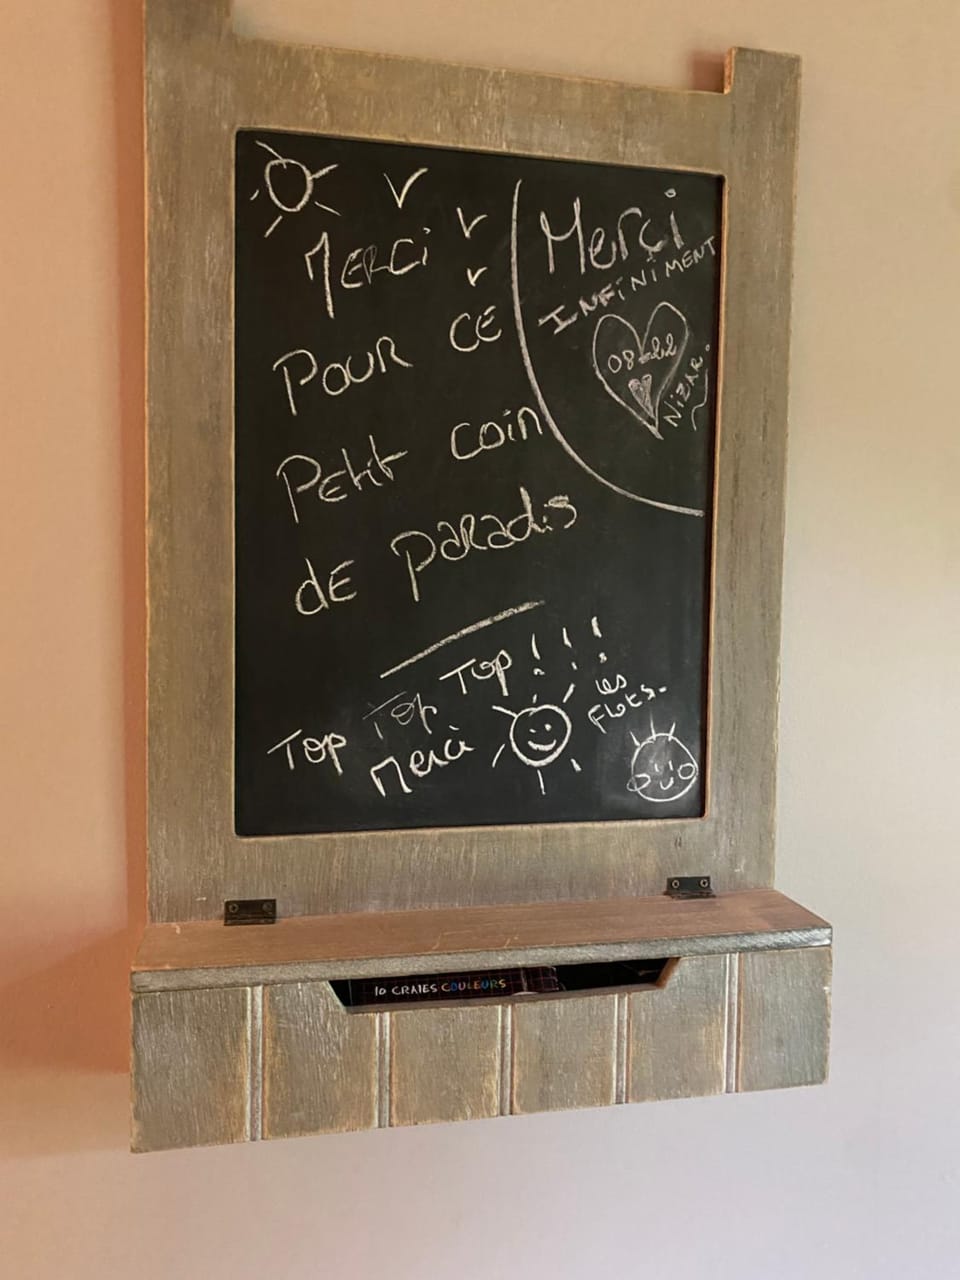 MERCi
POUR CE
Petit coin
de paradis
Merçi
INFiNiMENT
08-22
NiZAR.
Top Top Top !!!
Merci
les
Flots.
10 CRAIES COULEURS